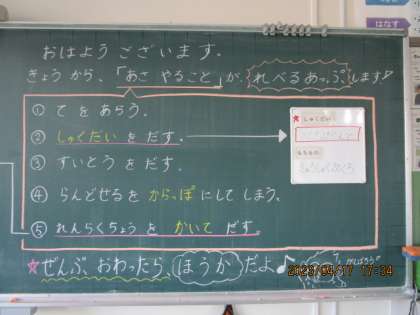 はなす
おはよう ございます。
きょう から、「あさ やること」が、れべるあっぷ します!
① て を あらう。
② しゅくだい を だす。
★しゅくだい
③ すいとう を だす。
④ らんどせる を からっぽ に して しまう。
⑤ れんらくちょう を かいて だす。
★ぜんぶ おわったら、ほうか だよ♪
がんばろう
2023/04/17 17:34